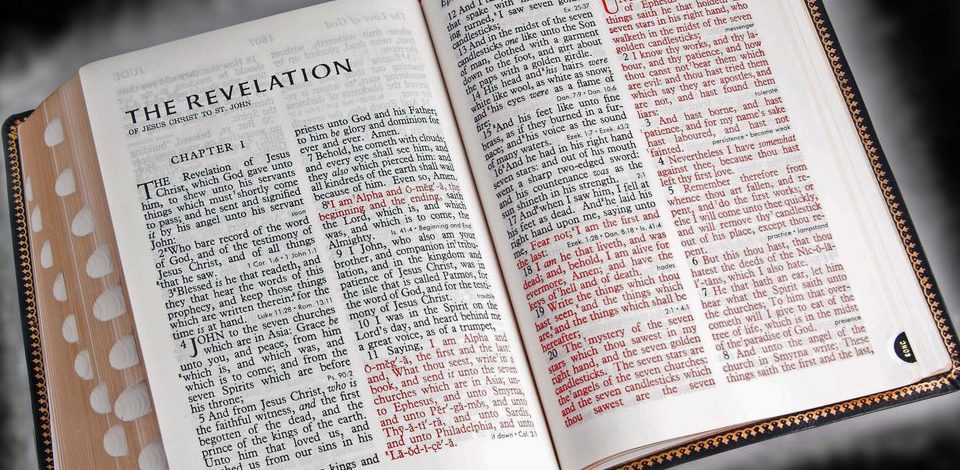 THE REVELATION
OF JESUS CHRIST TO ST. JOHN
CHAPTER 1
THE Revelation of Jesus
Christ, which God gave unto
him, to shew unto his servants
things which must shortly come
to pass; and he sent and signified
it by his angel unto his servant
John:
soon
2 Who bare record of the word
of God, and of the testimony of
Jesus Christ, and of all things
that he saw.
1 Cor. 1:6 • 1 John 1:1
3 Blessed is he that readeth, and
they that hear the words of this
prophecy, and keep those things
which are written therein: for the
time is at hand.
Luke 11:28 • Rom. 13:11
4 JOHN to the seven churches
which are in Asia: Grace be
unto you, and peace, from him
which is, and which was, and
which is to come; and from the
seven Spirits which are before
his throne;
Ps. 90:2
5 And from Jesus Christ, who is
the faithful witness, and the first
begotten of the dead, and the
prince of the kings of the earth.
Unto him that loved us, and
washed us from our sins in his
kings and
priests unto God and his Father;
to him be glory and dominion for
ever and ever. Amen.
7 Behold, he cometh with clouds;
and every eye shall see him, and
they also which pierced him: and
all kindreds of the earth shall wail
because of him. Even so, Amen.
8 I am Alpha and Ō-mĕg´-ă, the
beginning and the ending, saith
the Lord, which is, and which
was, and which is to come, the
Almighty.
Is. 41:4 • Beginning and End
9 I John, who also am your
brother, and companion in tribu-
lation, and in the kingdom and
patience of Jesus Christ, was in
the isle that is called Patmos, for
the word of God, and for the testi-
mony of Jesus Christ.
trouble
10 I was in the Spirit on the
Lord's day, and heard behind me
a great voice, as of a trumpet,
11 Saying, I am Alpha and
Ō-mĕg-ă, the first and the last:
and, What thou seest, write in a
book, and send it unto the seven
churches which are in Asia; un-
to Ephesus, and unto Smyrna,
and unto Pĕr´-gă-mŏs, and unto
Thȳ-ă-tī´-ră, and unto Sardis,
and unto Philadelphia, and unto
Lā-ŏd-ĭ-çē´-ă.
it down • Col. 2:1
12 And I
that spake with
ing turned, I saw seven golden
candlesticks;
Ex. 25:37
13 And in the midst of the seven
candlesticks one like unto the Son
of man, clothed with a garment
down to the foot, and girt about
the paps with a golden girdle.
14 His head and his hairs were
white like wool, as white as snow;
and his eyes were as a flame of
fire;
Dan. 7:9 • Dan. 10:6
15 And his feet like unto fine
brass, as if they burned in a fur-
nace; and his voice as the sound
of many waters.
Ezek. 1:7 • Ezek. 43:2
16 And he had in his right hand
seven stars: and out of his mouth
went a sharp two-edged sword:
and his countenance was as the
sun shineth in his strength.
2:1
17 And when I saw him, I fell at
his feet as dead. And he laid his
right hand upon me, saying unto
me, Fear not; I am the first and
the last:
Ezek. 1:28 • Dan. 8:18 • Is. 41:4
18 I am he that liveth, and was
dead; and, behold, I am alive for
evermore, Amen; and have the
keys of hell and of death.
hades
19 Write the things which thou
hast seen, and the things which
are, and the things which shall be
hereafter;
2:1 • 4:1
20 The mystery of the seven
stars which thou sawest in my
right hand, and the seven golden
candlesticks. The seven stars are
the angels of the seven churches:
and the seven candlesticks which
thou sawest are the seven
of Ephesus
things saith he that holdeth the
seven stars in his right hand, who
walketh in the midst of the seven
golden candlesticks;
messenger
2 I know thy works, and thy la-
bour, and thy patience, and how
thou canst not bear them which
are evil: and thou hast tried them
which say they are apostles, and
are not, and hast found them
liars:
tolerate
3 And hast borne, and hast
patience, and for my name's sake
hast laboured, and hast not
fainted.
persistence • become weak
4 Nevertheless I have somewhat
against thee, because thou hast
left thy first love.
5 Remember therefore from
whence thou art fallen, and re-
pent, and do the first works; or
else I will come unto thee quickly,
and will remove thy candlestick
out of his place, except thou re-
pent.
practice • lampstand
6 But this thou hast, that thou
hatest the deeds of the Nic-o-lā-
ĭ´-tāns, which I also hate.
7 He that hath an ear, let him
hear what the Spirit saith unto
the churches; To him that over-
cometh will I give to eat of the
tree of life, which is in the midst
of the paradise of God.
presence
8 And unto the angel of the
church in Smyrna write; These
things saith the first and the last,